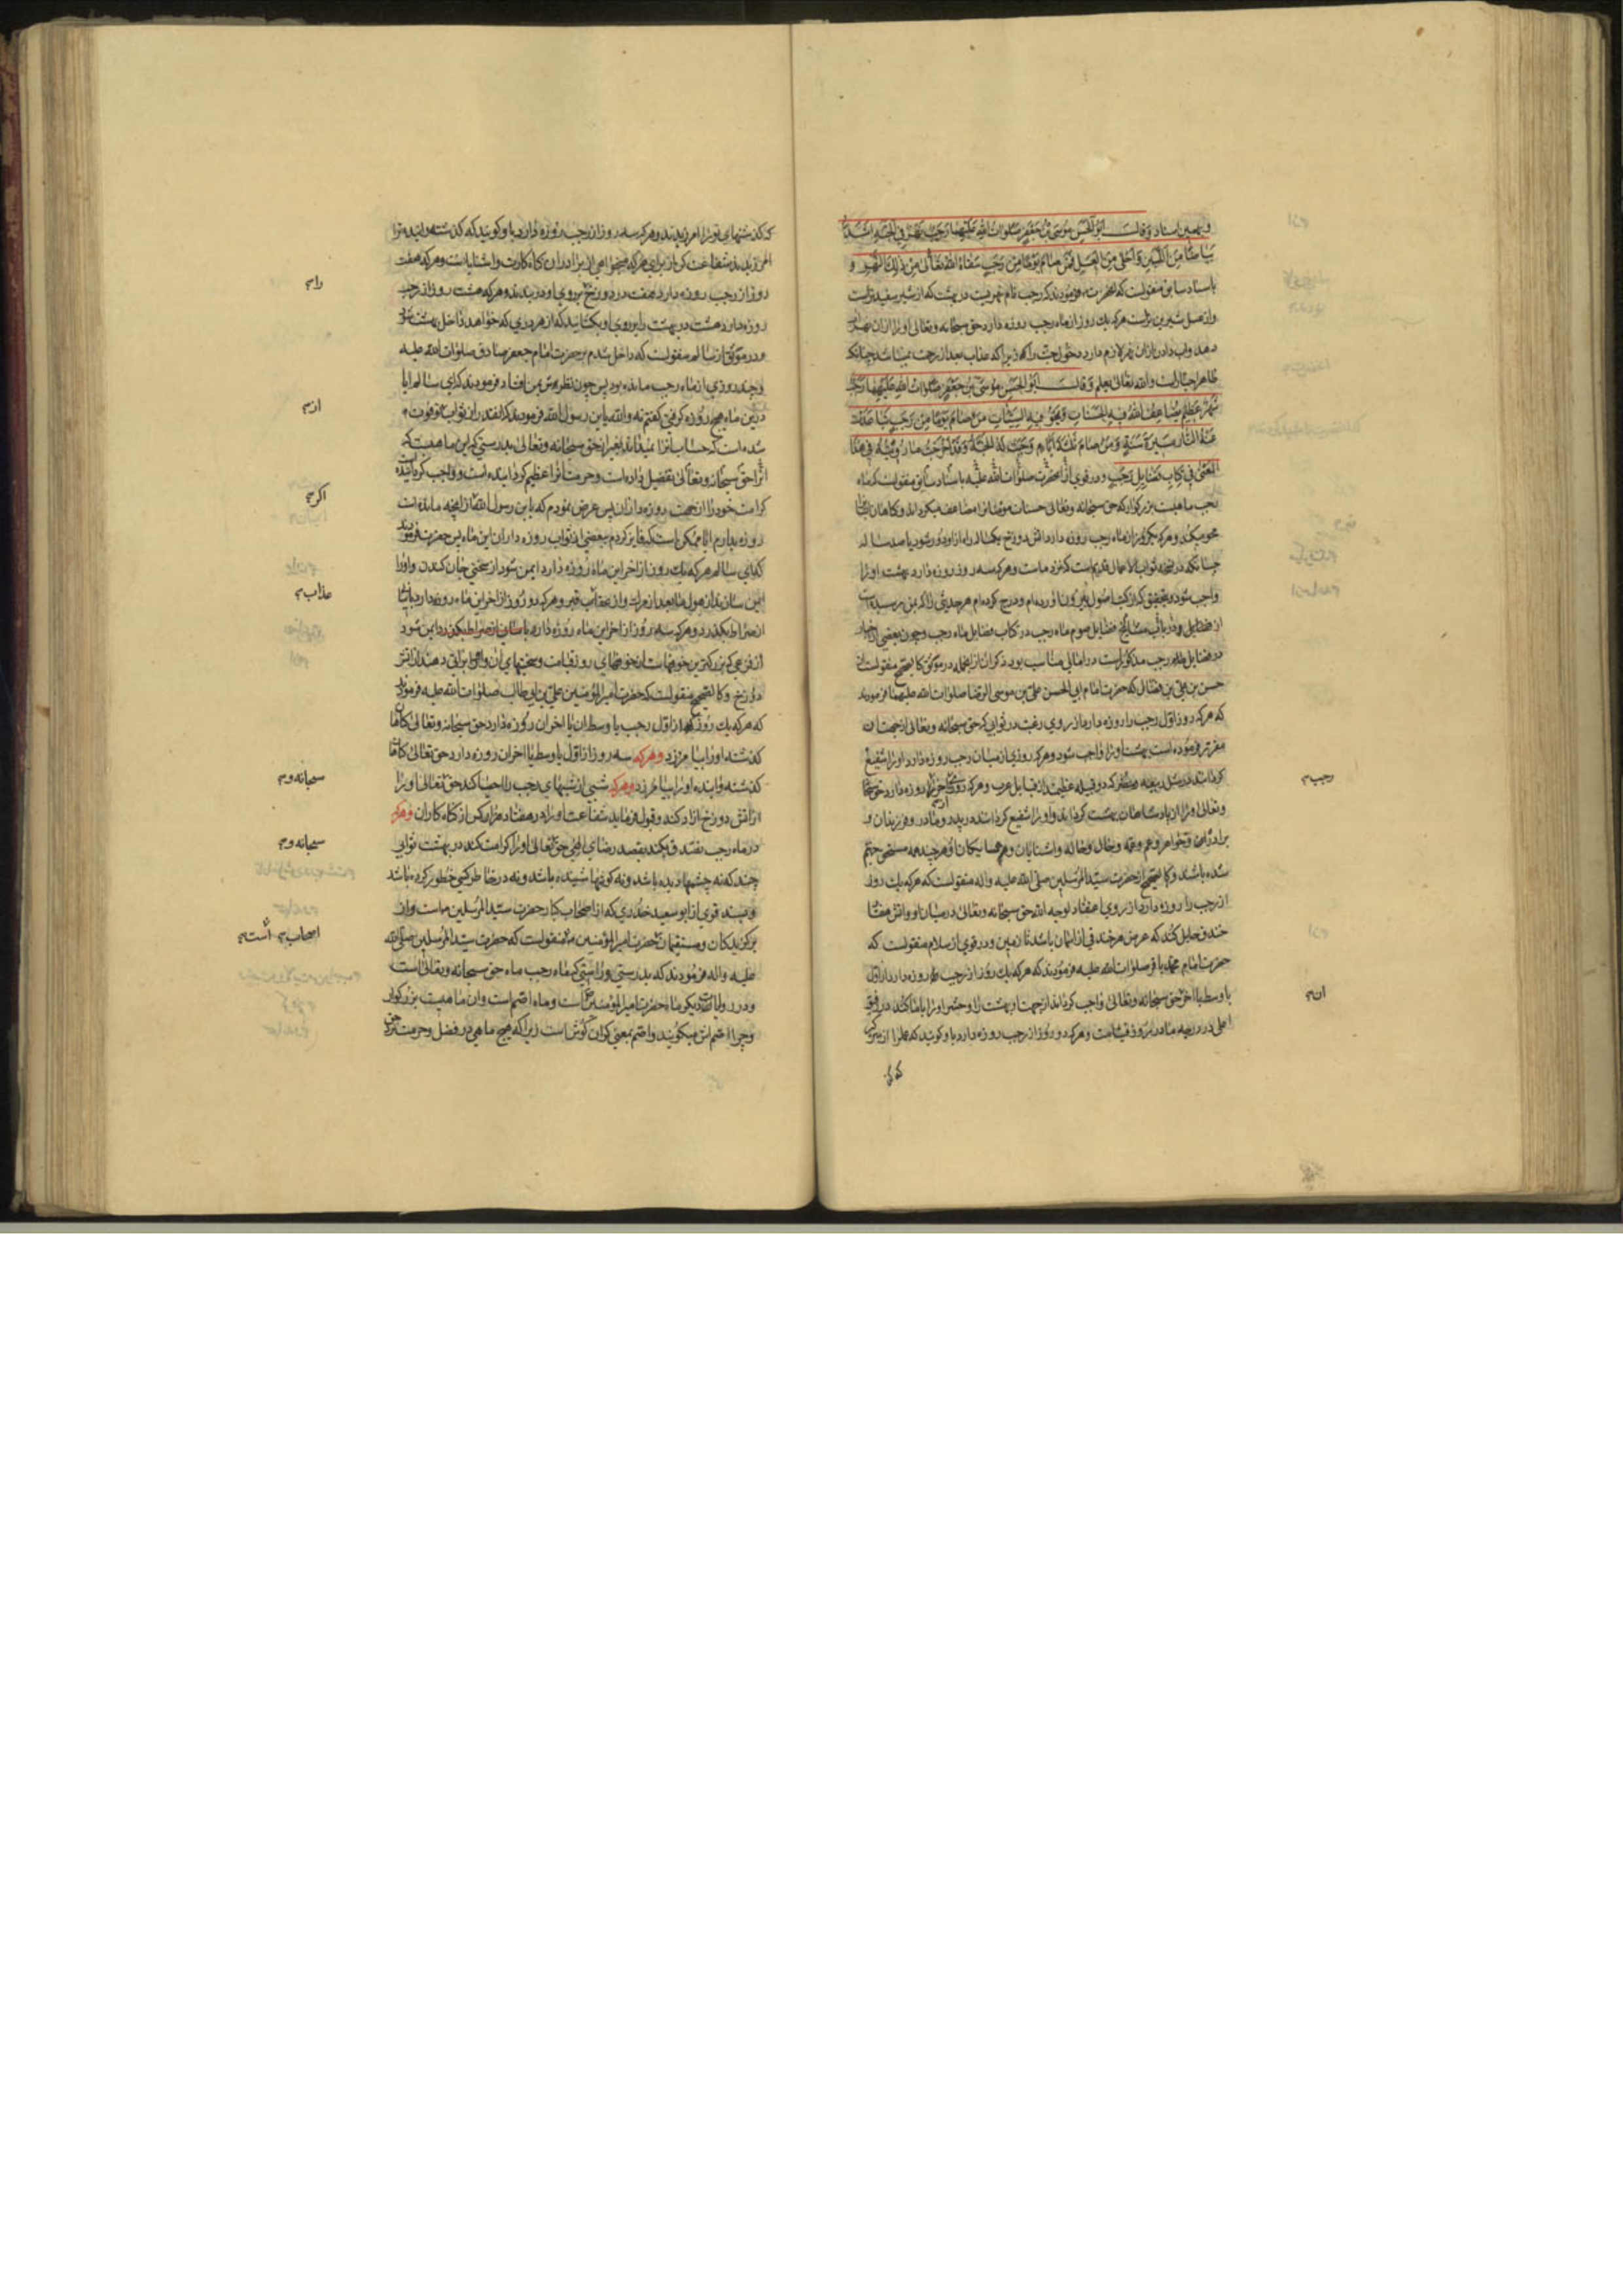 و بهمین اسناد وقال ابوالحسن موسی بن جعفر صلوات الله علیهما رجب نهر فی الجنة اشد
بیاضا من اللبن و احلی من العسل فمن صام یوما من رجب سقاه الله تعالی من ذلک النهر و
باسناد سابق منقولست که انحضرت فرمودند که رجب نام نهریست در بهشت که از شیر سفیدتر است
و از عسل شیرین تر است هر که یک روز از ماه رجب روزه دارد حق سبحانه وتعالی او را از ان نهر اب
دهد و اب دادن از ان نهر لازم دارد دخول جنت را که زیرا که عذاب بعد از رحمت نمیباشد چنانکه
ظاهر اخبار است والله تعالی یعلم وقال ابوالحسن موسی بن جعفر صلوات الله علیهما رجب
شهر عظیم یضاعف الله فیه الحسنات و یمحو فیه السیئات من صام یوما من رجب تباعدت
عنه النار مسیرة سنة و من صام ثلثة ایام وجبت له الجنة وقد اخرجت ما رویته فی هذا
المعنی فی کتاب فضایل رجب و در قوی از انحضرت صلوات الله علیه باسناد سابق منقولست که ماه
رجب ماهیست بزرکوار که حق سبحانه وتعالی حسنات مؤمنانرا مضاعف میکرداند و کناهان
محو میکند و هر که یکروز از ماه رجب روزه دارد اتش دوزخ یکساله راه از او دور شود یا صد ساله
چنانکه در نسخه ثواب الاعمال قدیم است که نزد ماست و هر که سه روز روزه دارد بهشت او را
واجب شود و بتحقیق که از کتب اصول بیرون اورده ام و درج کرده ام هر حدیثی را که بمن رسیده است
از فضایل و در باب صوم ماه رجب در کتاب فضایل ماه رجب و چون بعضی از اخبار
در فضایل رجب مذکور است در امالی مناسب بود ذکر ان از انجمله در موثق کالصحیح منقولست از
حسن بن علی بن فضال که حضرت امام ابی الحسن علی بن موسی الرضا صلوات الله علیهما فرمودند
که هر که روز اول رجب را روزه دارد از روی رغبت در ثوابی که حق سبحانه وتعالی از جهت ان
مقرر فرموده است بهشت او را واجب شود و هر که روزی از میان رجب روزه دارد او را شفیع
کردانند در مثل ربیعه و مضر که دو قبیله عظیمند از قبایل عرب و هر که روزی از اخر ان روزه دارد حق سبحانه
وتعالی او را از پادشاهان بهشت کرداند و او را شفیع کردانند در پدر و مادر و فرزندان و
برادران و خواهر و عم و عمه و خال و خاله و اشنایان و همسایکان او هر چند همه مستحق جهنم
شده باشند و کالصحیح از حضرت سید المرسلین صلی الله علیه واله منقولست که هر که یک روز
از رجب را روزه دارد از روی اعتقاد لوجه الله حق سبحانه وتعالی در میان او و اتش هفتاد
خندق حایل کند که عرض هر خندقی از اسمان باشد تا زمین و در قوی از سلام منقولست که
حضرت امام محمد باقر صلوات الله علیه فرمودند که هر که یک روز از رجب روزه دارد از اول
یا وسط یا اخر حق سبحانه وتعالی واجب کرداند از جهت او بهشت را و حشر او را با ما کند در رفیق
اعلی در درجه ما در روز قیامت و هر که دو روز از رجب روزه دارد باو کویند که عمل را از سر کیر
که
رجب
ان
که کذشتهای تو را امرزیدند و هر که سه روز از رجب روزه دارد باو کویند که کذشته و اینده ترا
امرزیدند شفاعت کن از برای هر که میخواهی از برادران کناه کارت و اشنایانت و هر که هفت
روز از رجب روزه دارد هفت در دوزخ بر روی او در بندند و هر که هشت روز از رجب
روزه دارد هشت در بهشت را بروی او بکشایند که از هر دری که خواهد داخل بهشت شود
و در موثق از سالم منقولست که داخل شدم بر حضرت امام جعفر صادق صلوات الله علیه
و چند روزی از ماه رجب مانده بود پس چون نظر بمن افتاد فرمودند که ای سالم ایا
درین ماه هیچ روزه کرفتی کفتم نه والله یا بن رسول الله فرمودند که انقدر از ثواب از تو فوت
شده است که حساب انرا نمیداند بغیر از حق سبحانه وتعالی بدرستی که این ماهیست که
انرا حق سبحانه وتعالی تفضیل داده است و حرمت انرا عظیم کردانیده است و واجب کردانیده است
کرامت خود را از جهت روزه داران پس عرض نمودم که یا بن رسول الله اکر از انچه مانده است
روزه بدارم ایا ممکن است که فایز کردم ببعضی از ثواب روزه داران این ماه پس حضرت فرمودند
که ای سالم هر که یک روز از اخر این ماه روزه دارد ایمن شود از سختی جان کندن و او را
ایمن سازند از هول ما بعد از مرک و از عذاب قبر و هر که دو روز از اخر این ماه روزه دارد باسانی
از صراط بکذرد و هر که سه روز از اخر این ماه روزه دارد باسانی از صراط بکذرد ایمن شود
از فزعی که بزرکترین خوفهاست از خوفهای روز قیامت و سختیهای ان و او را براتی دهند از اتش
دوزخ و کالصحیح منقولست که حضرت امیر المؤمنین علی بن ابی طالب صلوات الله علیه فرمودند
که هر که یک روز از اول رجب یا وسط ان یا اخر ان روزه دارد حق سبحانه وتعالی کناهان
کذشته او را بیامرزد و هر که سه روز از اول یا وسط یا اخر ان روزه دارد حق تعالی کناهان
کذشته و اینده او را بیامرزد و هر که شبی از شبهای رجب را احیا کند حق تعالی او را
از اتش دوزخ ازاد کند و قبول فرماید شفاعت او را در هفتاد هزار کس از کناه کاران و هر که
در ماه رجب تصدق کند بقصد رضای الهی حق تعالی او را کرامت کند در بهشت ثوابی
چند که نه چشمها دیده باشد و نه کوشها شنیده باشد و نه در خاطر کسی خطور کرده باشد
و بسند قوی از ابو سعید خدری که از اصحاب کبار حضرت سید المرسلین است و از
برکزیدکان و مستقیمان حضرت امیر المؤمنین منقولست که حضرت سید المرسلین صلی الله
علیه واله فرمودند که بدرستی و راستی که ماه رجب ماه حق سبحانه وتعالی است
و در روایات دیکر ماه حضرت امیر المؤمنین است و ماه اصم است و ان ماهیست بزرکوار
و چرا اصم اش میکویند و اصم بمعنی کران کوش است زیرا که هیچ ماهی در فضل و حرمت نزد حق
را
از
اکر
عذاب
سبحانه و
سبحانه و
اصحاب است